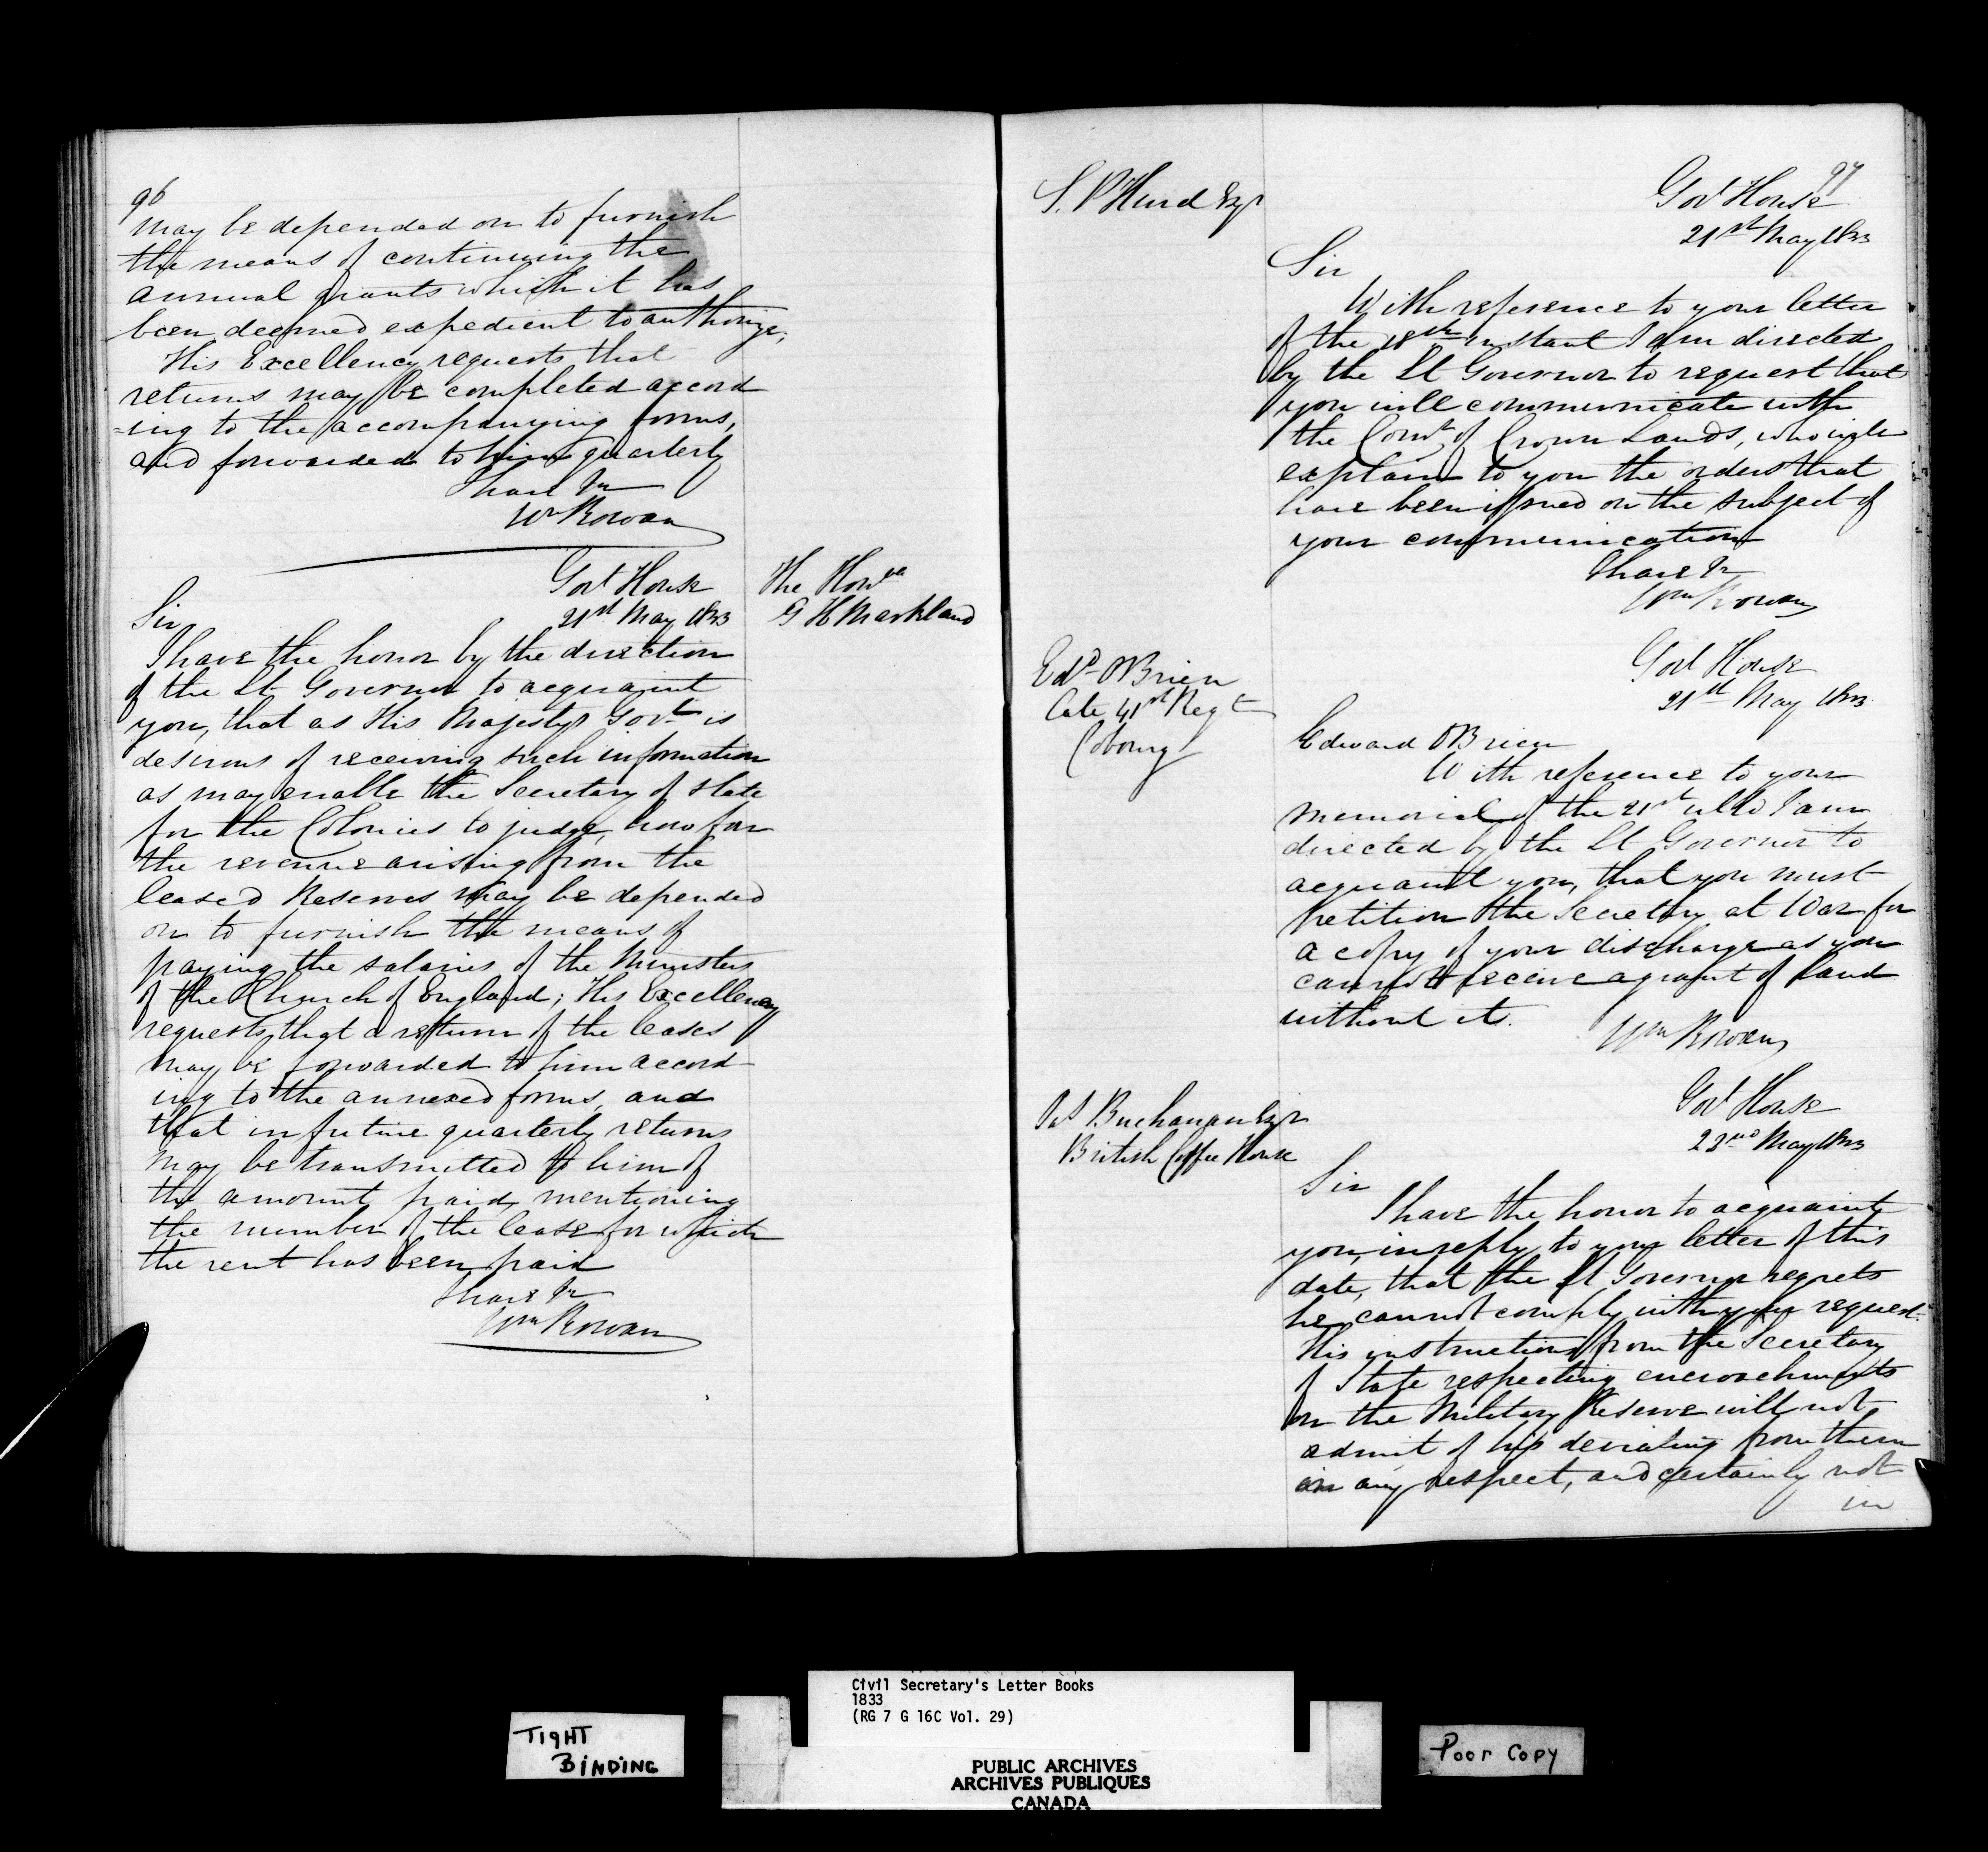 96
may be depended on to furnish
the means of continuing the
annual grants which it has
been deemed expedient to authorize,
His Excellency requests that
returns may be completed accord
=ing to the accompanying forms,
and forwarded to him quarterly
I have &c
Wm Rowan
Govt House
21st May 1833
The Honble
G H Markland
Sir
I have the honor by the direction
of the Lt Governor to acquaint
you, that as His Majestys Govt is
desirous of receiving such information
as may enable the Secretary of State
for the Colonies to judge, how far
the revenue arising from the
leased Reserves may be depended
on to furnish the means of
paying the salaries of the Ministers
of the Church of England; His Excellency
requests, that a return of the leases
may be forwarded to him accord
ing to the annexed forms, and
that in future quarterly returns
may be transmitted to him of
the amount paid, mentioning
the number of the lease for which
the rent has been paid
I have &c
Wm Rowan
97
S. P Hurd Esqr
Govt House
21st May 1833
Sir
With reference to your letter
of the 18th instant I am directed
by the Lt Governor to request that
you will communicate with
the Comr of Crown Lands, who will
explain to you the orders that
have been issued on the subject of
your communication
I have &c
Wm Rowan
Edd OBrien
late 41st Regt
Cobourg
Govt House
21st May 1833
Edward OBrien
With reference to your
memorial of the 21st ulto I am
directed by the Lt Governor to
acquaint you, that you must
petition the Secretary at War for
a copy of your discharge as you
cannot receive a grant of land
without it.
Wm Rowan
Buchanan Esqr
British Coffee House
Govt House
22nd May 1833
Sir
I have the honor to acquaint
you, in reply to your letter of this
date, that the Lt Governor regrets
he cannot comply with your request.
His instructions from the Secretary
of State respecting encroachments
on the Military Reserve will not
admit of his deviating from them
in any respect, and certainly not
in
Civil Secretary's Letter Books
1833
(RG 7 G 16C Vol. 29)
TIGHT
BINDING
PUBLIC ARCHIVES
ARCHIVES PUBLIQUES
CANADA
Poor Copy